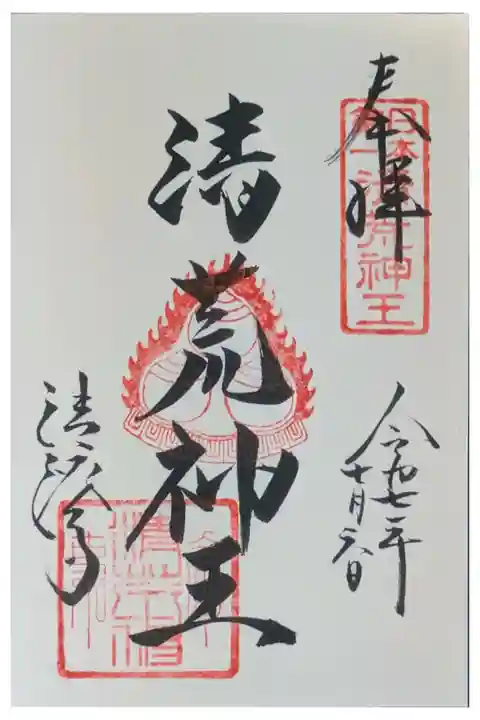 奉拝
日本
第一
清荒神王
令和七年
十月六日
清荒神王
清澄寺